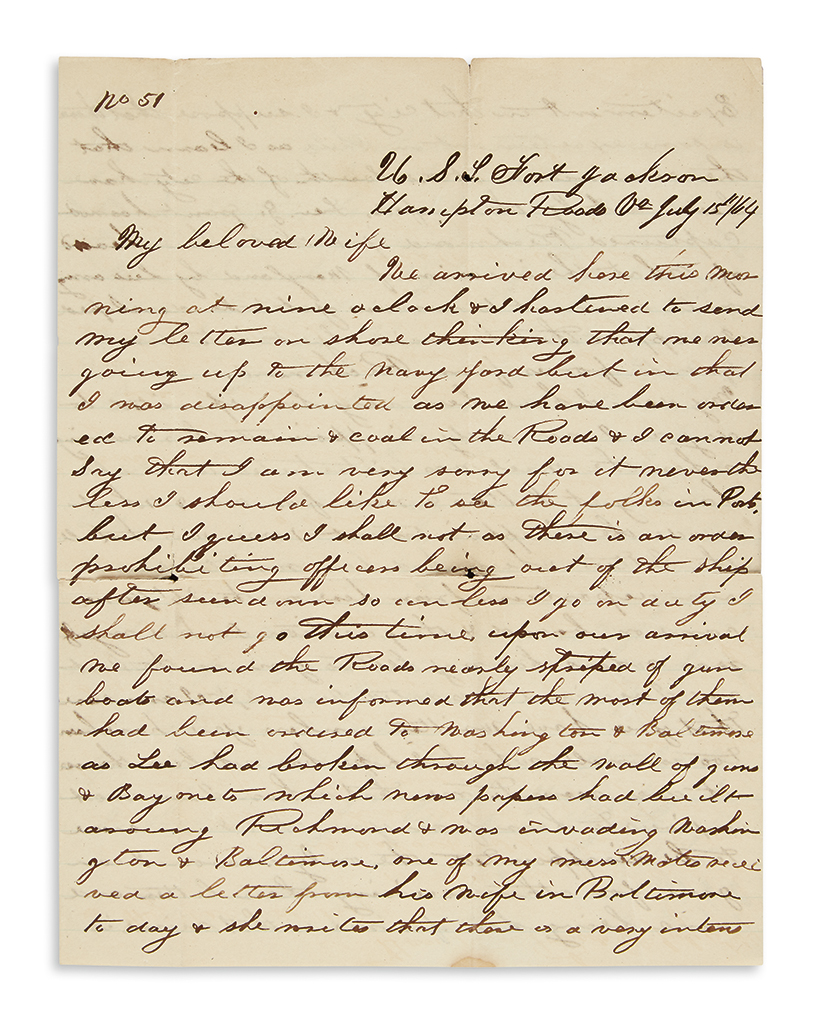 No 51
U. S. S. Fort Jackson
Hampton Roads Va July 15th/64
My beloved Wife
We arrived here this mor
ning at nine oclock & I hastened to send
my letter on shore thinking that we wer
going up to the navy yard but in that
I was disappointed as we have been order
ed to remain & coal in the Roads & I cannot
Say that I am very sorry for it neverthe
less I should like to see the folks in Ports,
but I guess I shall not as there is an order
prohibiting officers being out of the ship
after sundown so unless I go on duty I
shall not go this time, upon our arrival
we found the Roads nearly striped of gun
boats and was informed that the most of them
had been ordered to Washington & Baltimore
as Lee had broken through the wall of guns
& Bayonets which news papers had built
aroung Richmond & was invading Washin
gton & Baltimore, one of my mess mates recei
ved a letter from his wife in Baltimore
to day & she writes that there is a very intens